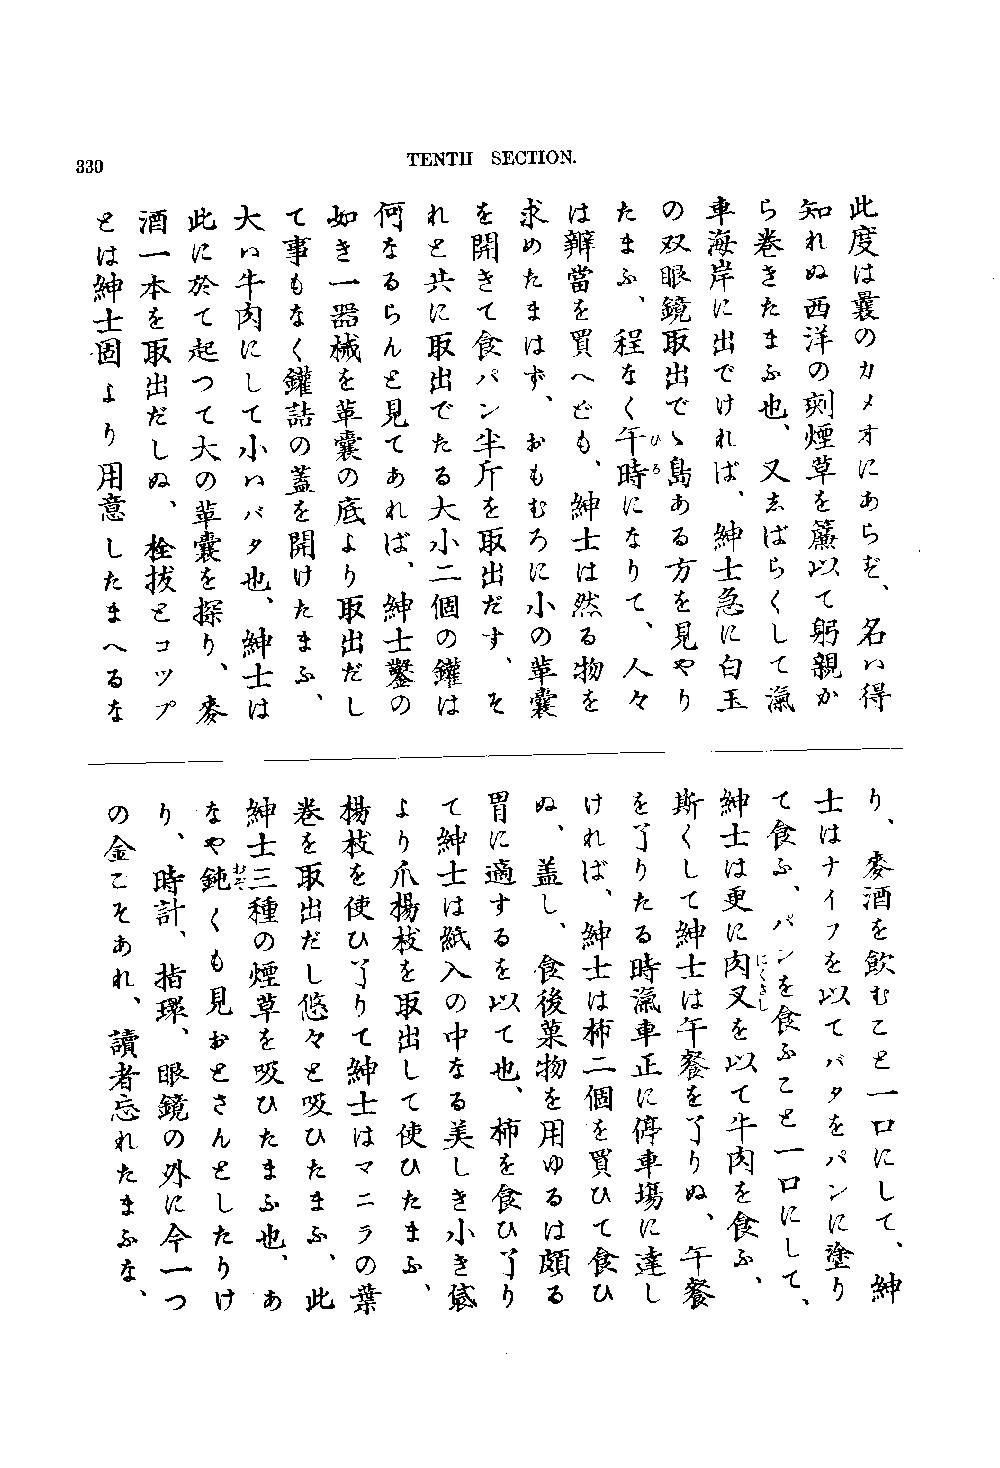 330
TENTH SECTION.
此度は曩のカメオにあらぞ、名ハ得
知れぬ西洋の刻煙草を簾以て躬親か
ら巻きたまふ也、又ゑばらくして滊
車海岸に出でければ、紳士急に白玉
の双眼鏡取出でゝ島ある方を見やり
たまふ、程なく午時になりて、人々
は辯當を買へども、紳士は然る物を
求めたまはず、おもむろに小の革嚢
を開きて食パン半斤を取出だす、そ
れと共に取出でたる大小二個の鑵は
何なるらんと見てあれば、紳士鑿の
如き一器械を革嚢の底より取出だし
て事もなく鑵詰の蓋を開けたまふ、
大ハ牛肉にして小ハバタ也、紳士は
此に於て起つて大の革嚢を探り、麥
酒一本を取出だしぬ、栓拔とコツプ
とは紳士固より用意したまへるな
り、麥酒を飮むこと一口にして、紳
士はナイフを以てバタをパンに塗り
て食ふ、パンを食ふこと一口にして、
紳士は更に肉叉を以て牛肉を食ふ、
斯くして紳士は午餐を了りぬ、午餐
を了りたる時滊車正に停車場に達し
ければ、紳士は柿二個を買ひて食ひ
ぬ、蓋し、食後菓物を用ゆるは頗る
胃に適するを以て也、柿を食ひ了り
て紳士は紙入の中なる美しき小き袋
より爪楊枝を取出して使ひたまふ、
楊枝を使ひ了りて紳士はマニラの葉
巻を取出だし悠々と吸ひたまふ、此
紳士三種の煙草を吸ひたまふ也、あ
なや鈍くも見おとさんとしたりけ
り、時計、指環、眼鏡の外に今一つ
の金こそあれ、讀者忘れたまふな、